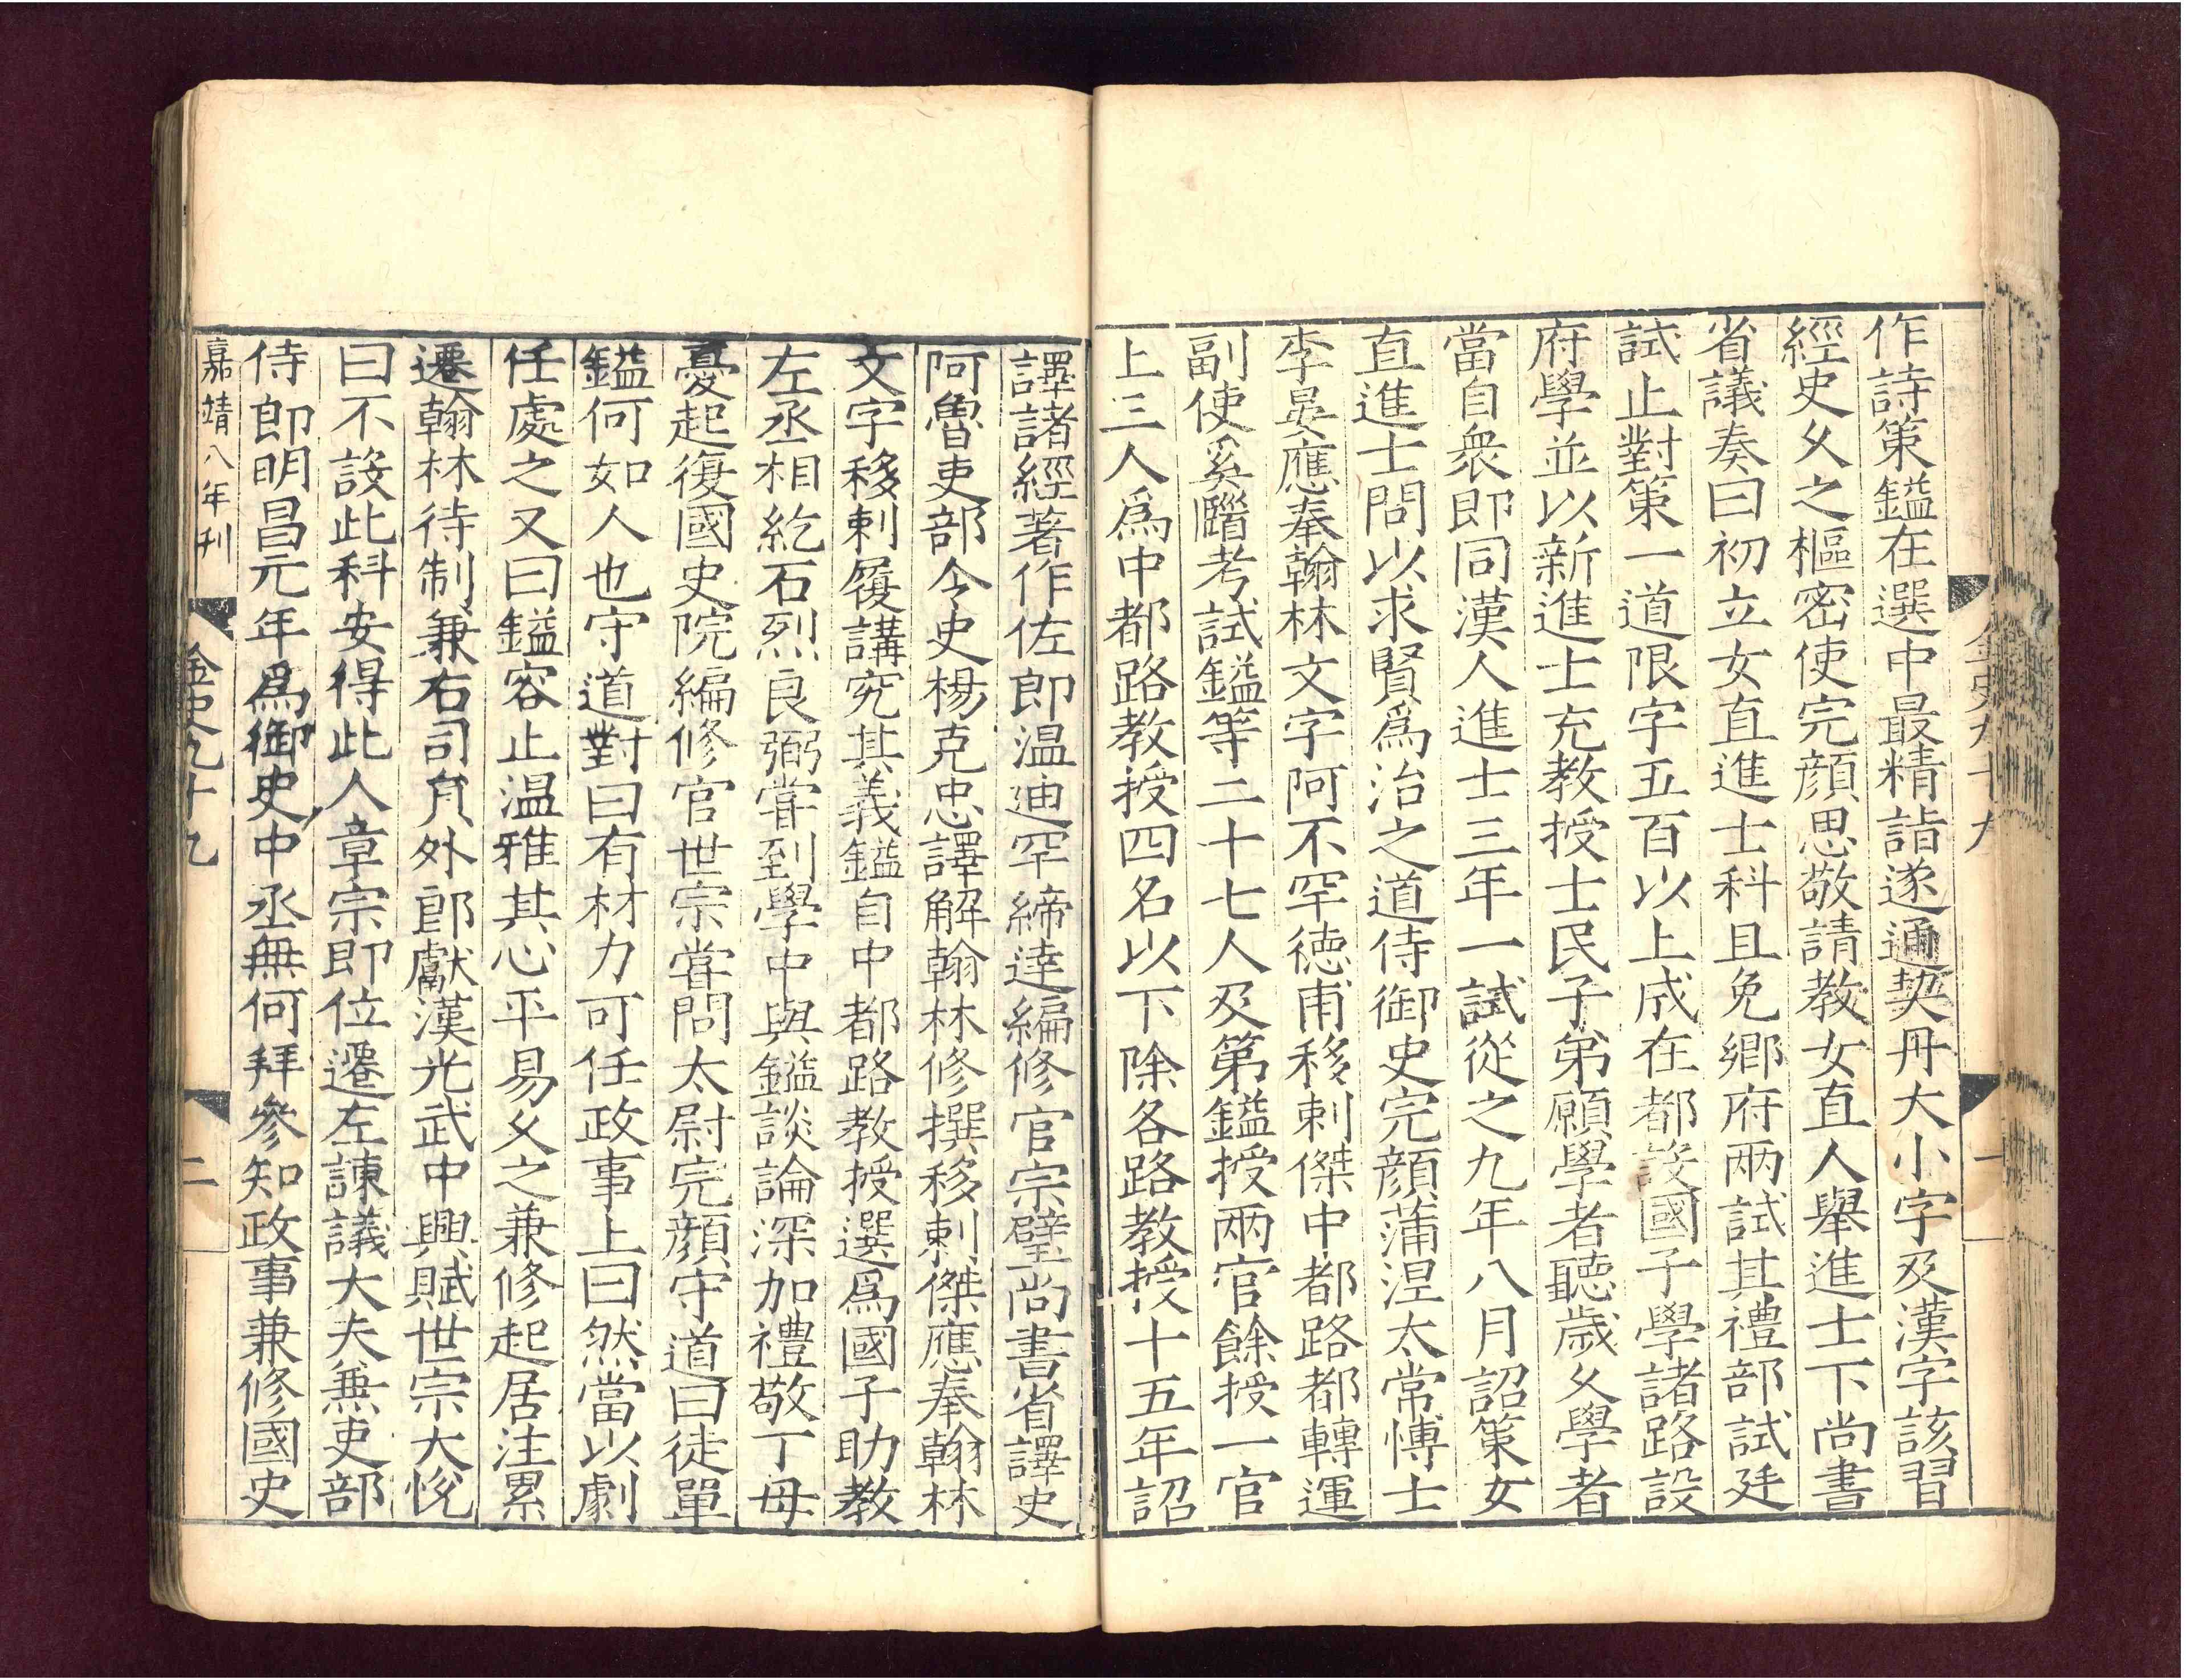 金史九十九
一
作詩策鎰在選中最精詣遂通契丹大小字及漢字該習
經史久之樞密使完顔思敬請教女直人舉進士下尚書
省議奏曰初立女直進士科且免鄉府兩試其禮部試廷
試止對策一道限字五百以上成在都設國子學諸路設
府學並以新進士充教授士民子弟願學者聽歲久學者
當自衆即同漢人進士三年一試從之九年八月詔策女
直進士問以求賢爲治之道侍御史完顔蒲涅太常愽士
李晏應奉翰林文字阿不罕德甫移剌傑中都路都轉運
副使奚𩥉考試鎰等二十七人及第鎰授兩官餘授一官
上三人爲中都路教授四名以下除各路教授十五年詔
譯諸經著作佐郎温迪罕締逹編修官宗璧尚書省譯史
阿魯吏部令史楊克忠譯解翰林修撰移剌傑應奉翰林
文字移剌履講究其義鎰自中都路教授選爲國子助教
左丞相紇石烈良弼甞到學中與鎰談論深加禮敬丁母
憂起復國史院編修官世宗甞問太尉完顔守道曰徒單
鎰何如人也守道對曰有材力可任政事上曰然當以劇
任處之又曰鎰容止温雅其心平易久之兼修起居注累
遷翰林待制兼右司貟外郎獻漢光武中興賦世宗大悅
曰不設此科安得此人章宗即位遷左諫議大夫兼吏部
侍郎明昌元年爲御史中丞無何拜參知政事兼修國史
嘉靖八年刊
金史九十九
二